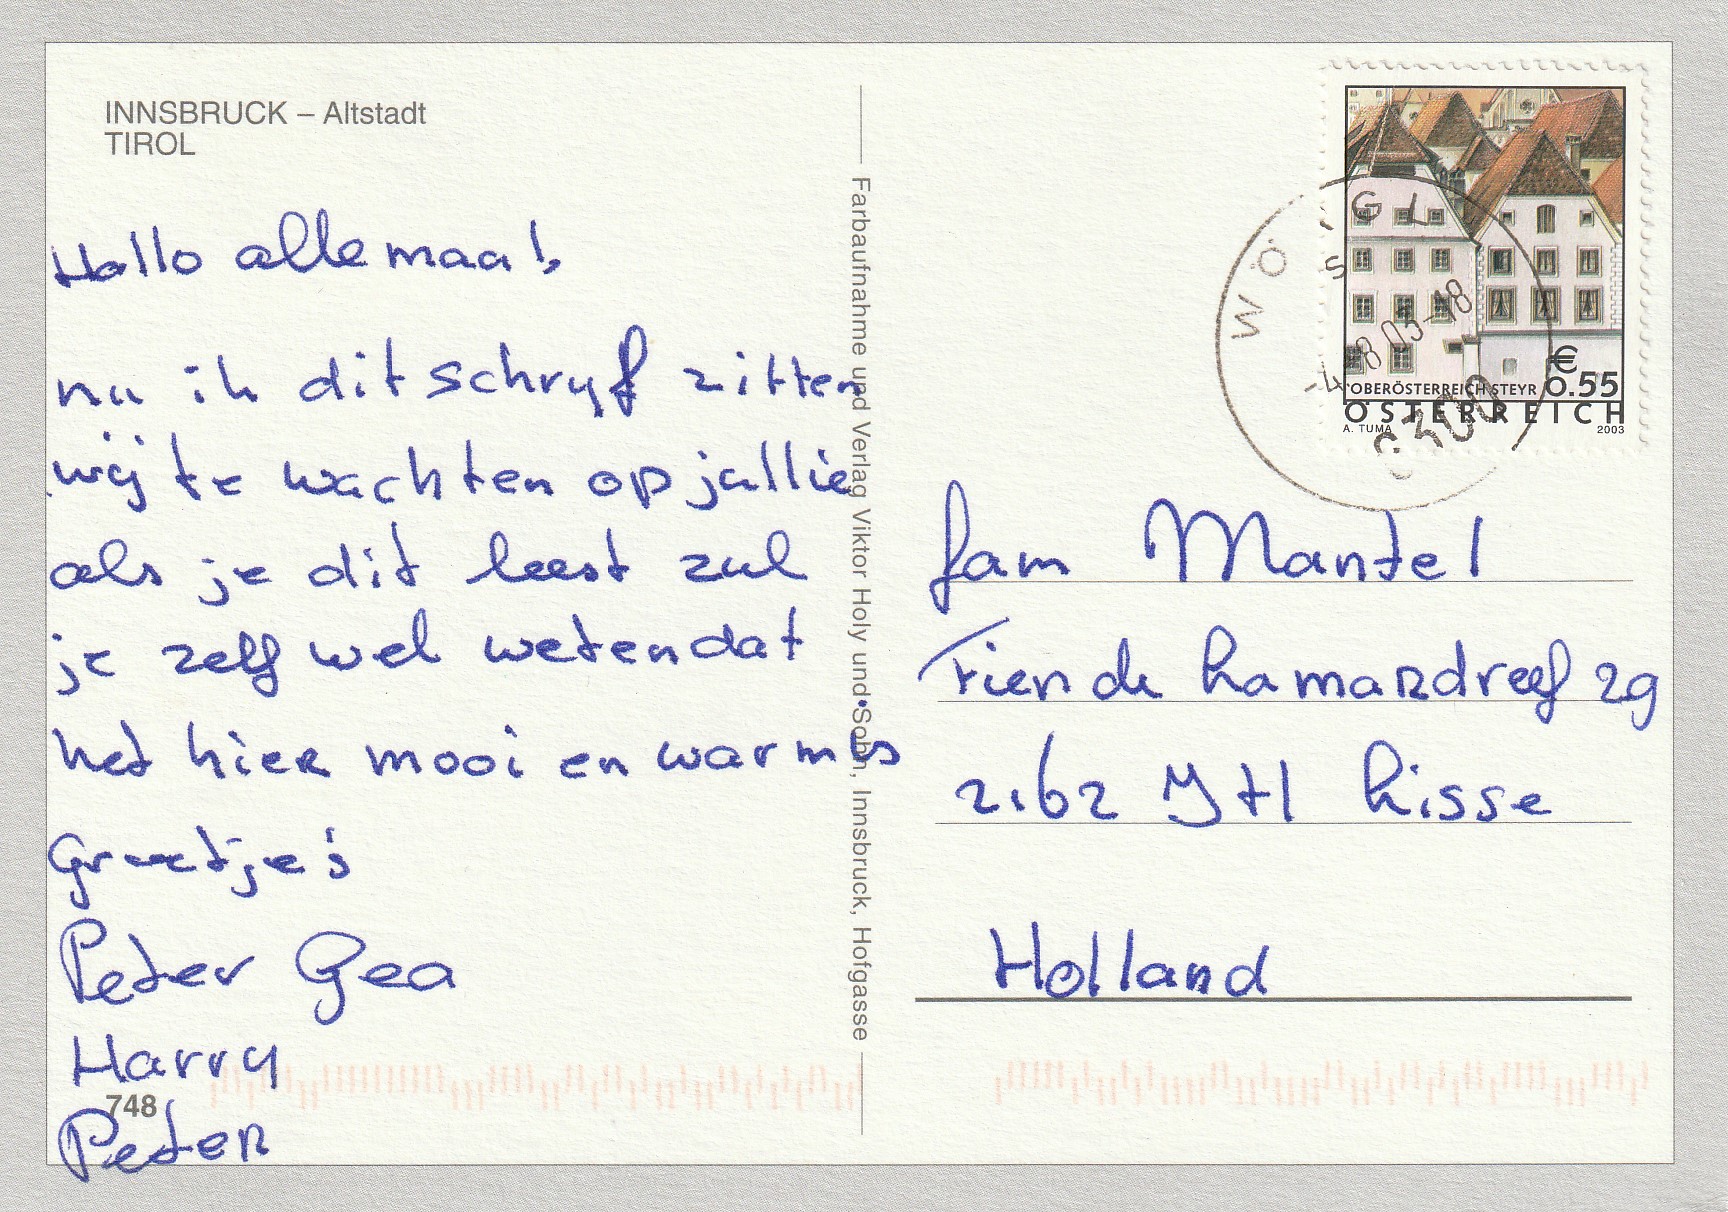 INNSBRUCK – Altstadt
TIROL
Hallo allemaal,
nu ik dit schryf zitten
wij te wachten op jullie
als je dit leest zul
je zelf wel weten dat
het hier mooi en warm is
Groetjes
Peter Gea
Harry
748
Peter
Farbaufnahme und Verlag Viktor Holy und Sohn, Innsbruck, Hofgasse
WÖRGL
-4.-8.03-18
6300
OBERÖSTERREICH STEYR
€ 0.55
ÖSTERREICH
A. TUMA 2003
fam Mantel
Fien de la Mardreef 29
2162 JH Lisse
Holland